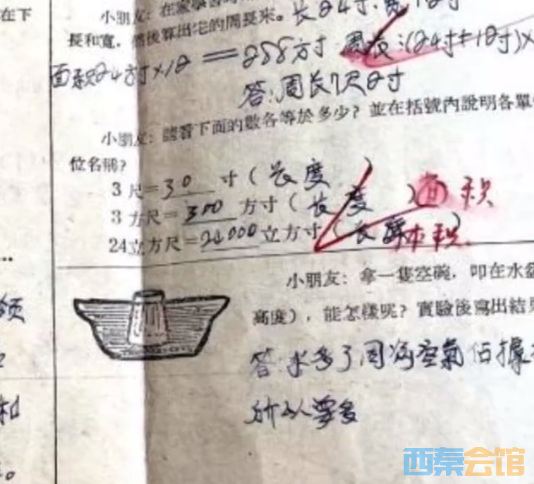 在下
小朋友：在家學習時
長和寬，然後算出它的周長來。长24寸，宽12寸
面积24方寸×12=288方寸 周长:(24寸+12寸)×
答:周长7尺2寸
小朋友：請看下面的數各等於多少？並在括號內說明各單
位名稱？
3尺=30寸（长度）
3方尺=300方寸（长度）面积
24立方尺=24000立方寸（长度）体积
小朋友：拿一隻空碗，叩在水盆
高度），能怎樣呢？實驗後寫出結
答:水多了因為空氣佔據
所以要多
和
西秦会馆